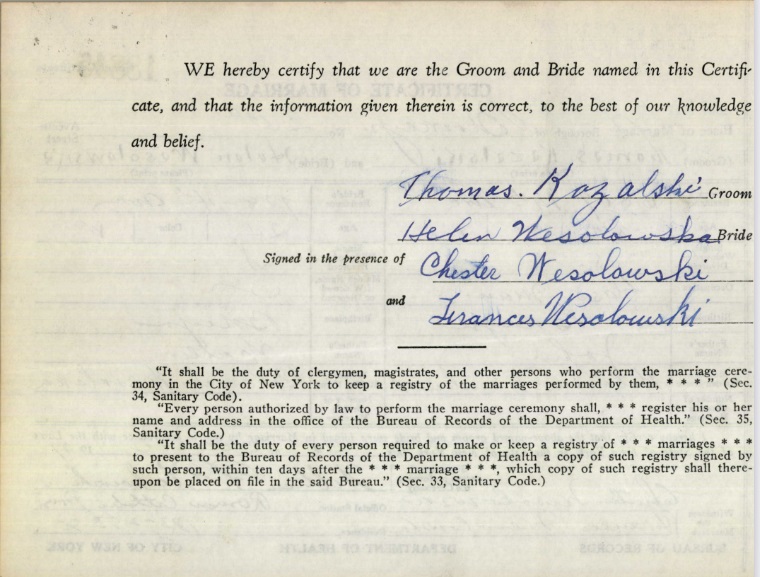 WE hereby certify that we are the Groom and Bride named in this Certifi-
cate, and that the information given therein is correct, to the best of our knowledge
and belief.
Thomas. Kozalski Groom
Helen Wesolowska Bride
Signed in the presence of Chester Wesolowski
and Frances Wesolowski
"It shall be the duty of clergymen, magistrates, and other persons who perform the marriage cere-
mony in the City of New York to keep a registry of the marriages performed by them, * * * " (Sec.
34, Sanitary Code).
"Every person authorized by law to perform the marriage ceremony shall, * * * register his or her
name and address in the office of the Bureau of Records of the Department of Health." (Sec. 35,
Sanitary Code.)
"It shall be the duty of every person required to make or keep a registry of * * * marriages * * *
to present to the Bureau of Records of the Department of Health a copy of such registry signed by
such person, within ten days after the * * * marriage * * *, which copy of such registry shall there-
upon be placed on file in the said Bureau." (Sec. 33, Sanitary Code.)